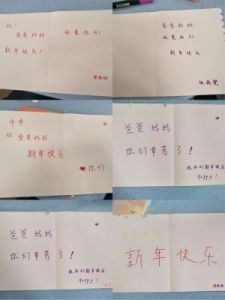 祝:
爸爸妈妈
新年快乐!
我爱你们
爸爸妈妈
我爱你们
新年快乐
祝爸爸妈妈
新年快乐
爸爸妈妈
你们辛苦了!
祝你们新年快乐
爸爸妈妈
你们辛苦了!
祝你们新年快乐
新年快乐